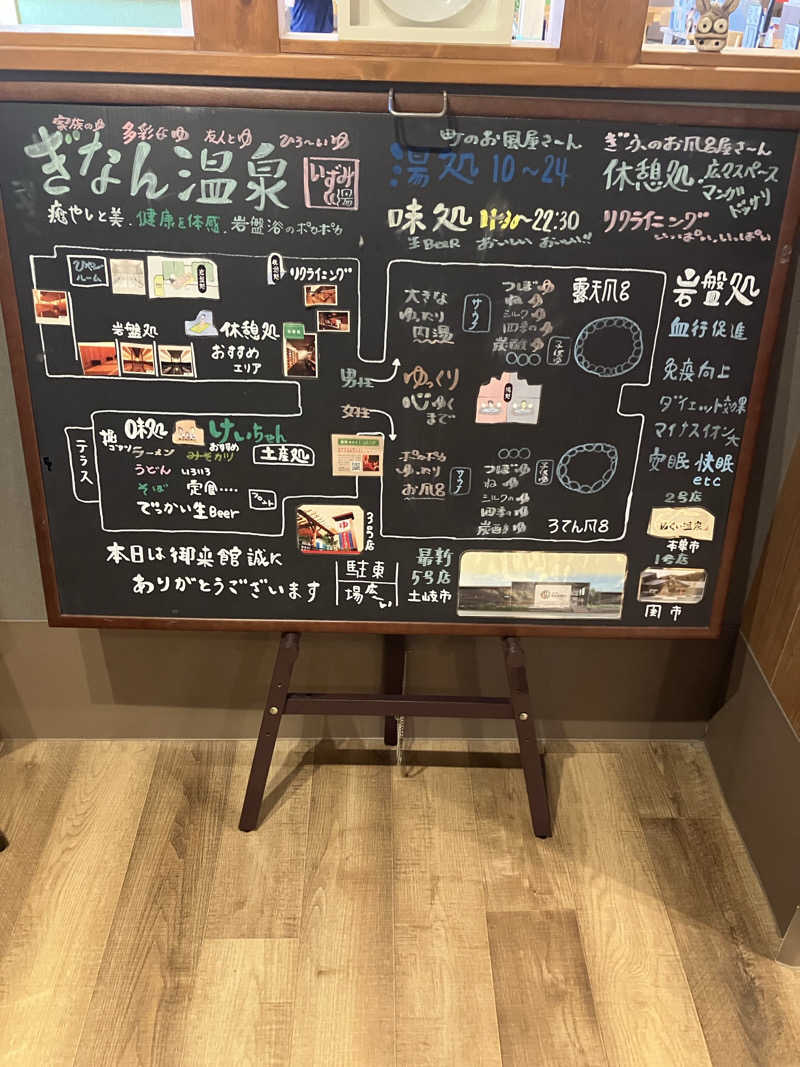 家族のゆ 多彩なゆ 友人とゆ ひろ〜いゆ
ぎなん温泉
いずみの湯
癒やしと美.健康を体感.岩盤浴のポカポカ
町のお風屋さ〜ん
湯処 10〜24
味処 11:30〜22:30
生BEER おいしい おいしい!!
ぎふのお風呂屋さ〜ん
休憩処・広クスペース
マンガ
ドッサリ
リクライニング
いっぱい、いっぱい
ルーム
リクライニング
岩盤処
休憩処
おすすめ
エリア
男性
女性
味処
けいちゃん
おすすめ
ラーメン
みそカツ
うどん いろいろ
そば 定食‥‥
でっかい生Beer
フロント
土産処
テラス
大きな
ゆったり
内湯
サウナ
つぼゆ
ねゆ
ミルクゆ
四季のゆ
炭酸ゆ
露天風呂
ゆっくり
心ゆく
まで
ポカポカ
ゆったり
お風呂
サウナ
つぼゆ
ねゆ
ミルクのゆ
四季のゆ
炭酸ゆ
ろてん風呂
岩盤処
血行促進
免疫向上
ダイエット効果
マイナスイオン大
安眠 快眠
etc
2号店
ぬくい温泉
本巣市
1号店
関市
3号店
本日は御来館誠に
ありがとうございます
駐車場
最新
5号店
土岐市